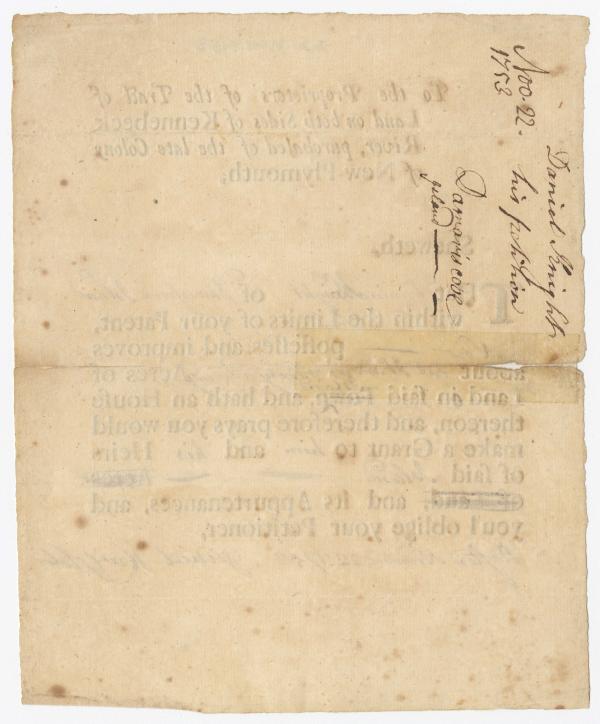 Daniel Knight
his petition
Nov. 22.
1753
Damariscove
Island
To the Proprietors of the Tract of
Land on both Sides of Kennebeck
River, purchased of the late Colony
of New Plymouth,
Sheweth,
of
within the Limits of your Patent,
possesses and improves
about Acres of
Land in said and hath an House
thereon, and therefore prays you would
make a Grant to him and his Heirs
of said
and Its Appurtenances, and
you'l oblige your Petitioner,